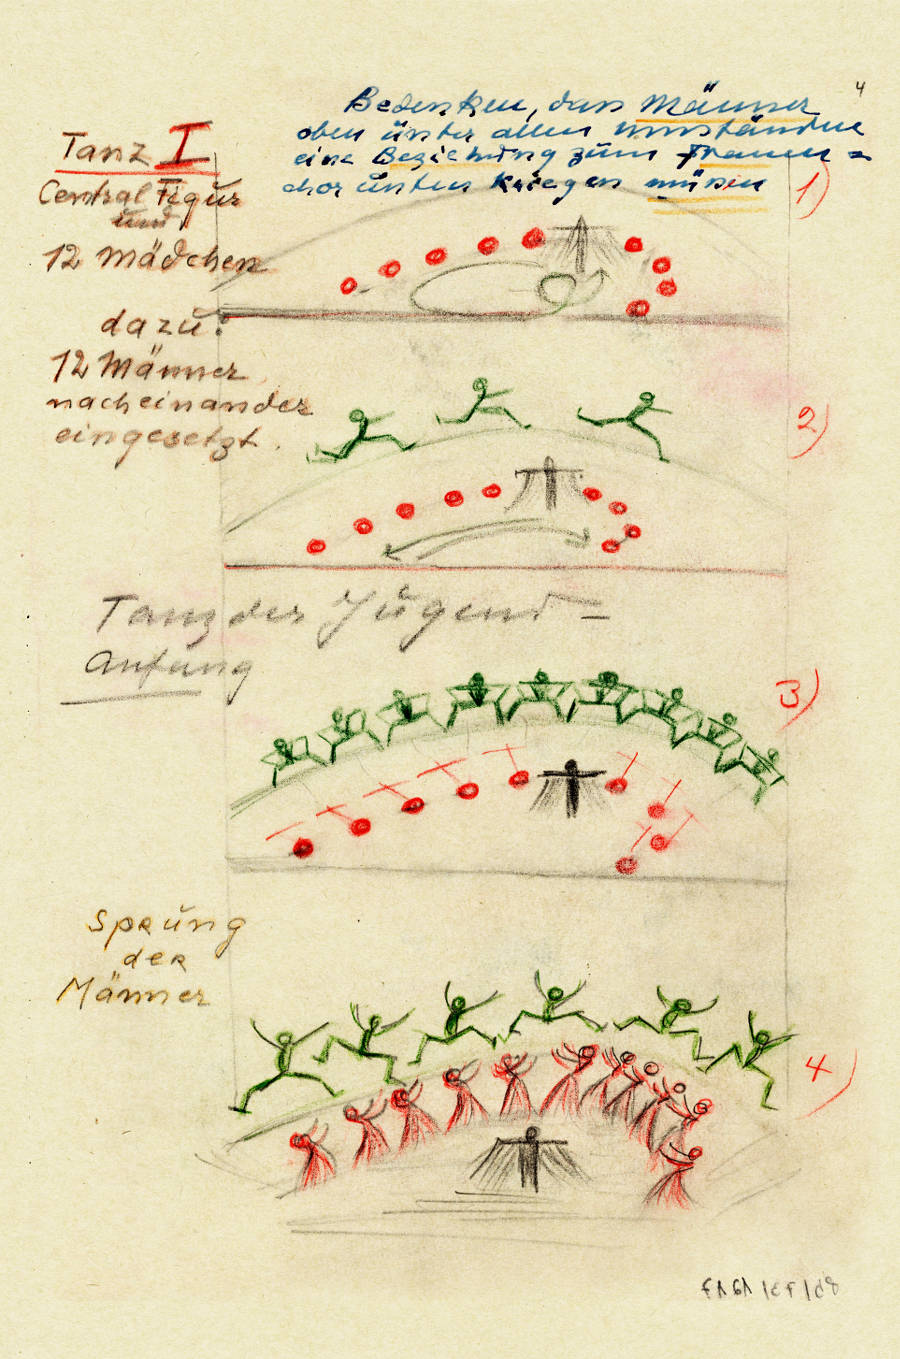 4
Bedenken, dass Männer
oben ünter allen umständen
eine Beziehüng züm Frauen=
chor ünten kriegen müssen
Tanz I
Central Figür
ünd
12 Mädchen
dazü:
12 Männer
nacheinander
eingesetzt.
1)
2)
Tanz der Jügend-
Anfang
3)
Sprüng
der
Männer
4)